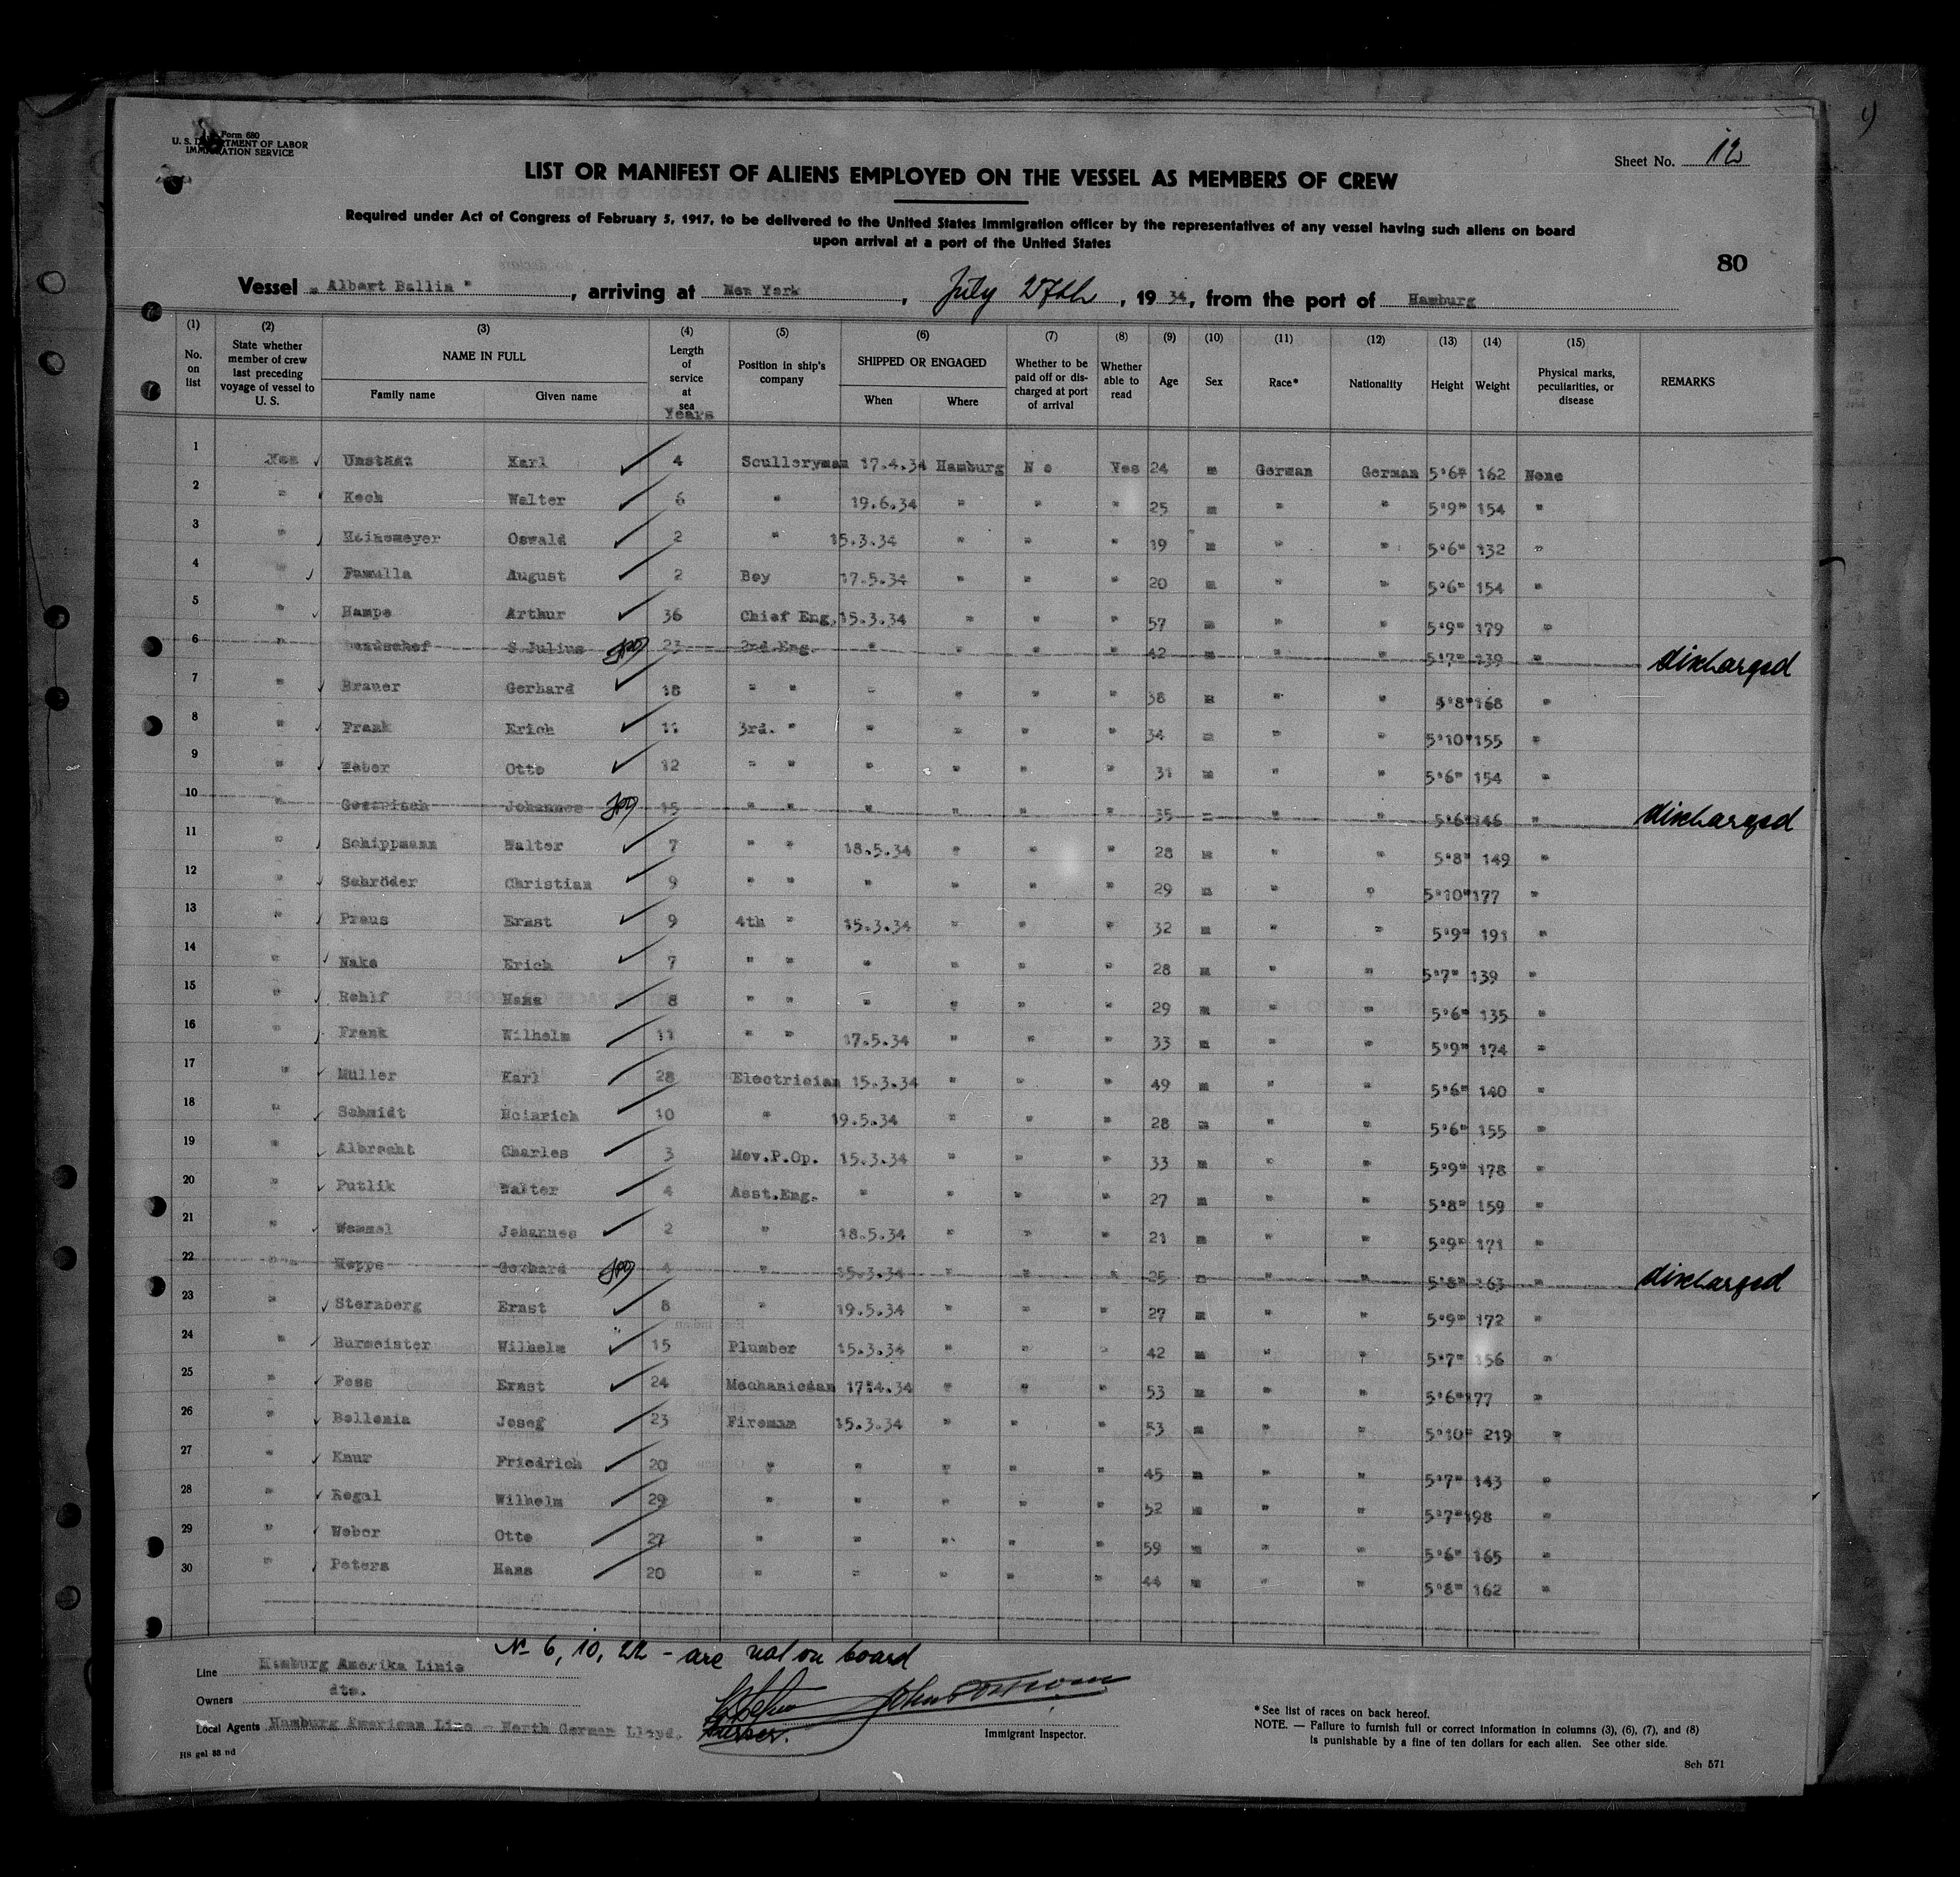 Form 680
U. S. DEPARTMENT OF LABOR
IMMIGRATION SERVICE
Sheet No. 12
LIST OR MANIFEST OF ALIENS EMPLOYED ON THE VESSEL AS MEMBERS OF CREW
Required under Act of Congress of February 5, 1917, to be delivered to the United States Immigration officer by the representatives of any vessel having such aliens on board
upon arrival at a port of the United States
80
Vessel " Albert Ballin ", arriving at New York, July 27th, 1934, from the port of Hamburg
(1) (2) (3) (4) (5) (6) (7) (8) (9) (10) (11) (12) (13) (14) (15)
No. on list State whether member of crew last preceding voyage of vessel to U. S. NAME IN FULL Family name Given name Length of service at sea Years Position in ship's company SHIPPED OR ENGAGED When Where Whether to be paid off or discharged at port of arrival Whether able to read Age Sex Race* Nationality Height Weight Physical marks, peculiarities, or disease REMARKS
1 Yes Karl 4 Sculleryman 17.4.34 Hamburg No Yes 24 m German German 5'6" 162 None
2 " Koch Walter 6 " 19.6.34 " " " 25 m " " 5'9" 154 "
3 " Heinemeyer Oswald 2 " 15.3.34 " " " 19 m " " 5'6" 132 "
4 " Pamulla August 2 Boy 17.5.34 " " " 20 m " " 5'6" 154 "
5 " Hampe Arthur 36 Chief Eng. 15.3.34 " " " 57 m " " 5'9" 179 "
6 " S.Julius 23 2nd.Eng. " " " " 42 m " " 5'7" 139 " discharged
7 " Brauer Gerhard 18 " " " " " " 38 m " " 5'8" 168 "
8 " Frank Erich 11 3rd. " " " " " 34 m " " 5'10" 155 "
9 " Weber Otto 12 " " " " " " 31 m " " 5'6" 154 "
10 " Johannes 15 " " " " " " 35 m " " 5'6" 146 " discharged
11 " Schippmann Walter 7 " " 18.5.34 " " " 28 m " " 5'8" 149 "
12 " Schröder Christian 9 " " " " " " 29 m " " 5'10" 177 "
13 " Preus Ernst 9 4th " 15.3.34 " " " 32 m " " 5'9" 191 "
14 " Nake Erich 7 " " " " " " 28 m " " 5'7" 139 "
15 " Rehlf Hans 8 " " " " " " 29 m " " 5'6" 135 "
16 " Frank Wilhelm 11 " " 17.5.34 " " " 33 m " " 5'9" 174 "
17 " Müller Karl 28 Electrician 15.3.34 " " " 49 m " " 5'6" 140 "
18 " Schmidt Heinrich 10 " 19.5.34 " " " 28 m " " 5'6" 155 "
19 " Albrecht Charles 3 Mov.P.Op. 15.3.34 " " " 33 m " " 5'9" 178 "
20 " Putlik Walter 4 Asst.Eng. " " " " 27 m " " 5'8" 159 "
21 " Wemmel Johannes 2 " 18.5.34 " " " 21 m " " 5'9" 171 "
22 " Meppe Gerhard 4 " 15.3.34 " " " 25 m " " 5'8" 163 " discharged
23 " Sternberg Ernst 8 " 19.5.34 " " " 27 m " " 5'9" 172 "
24 " Burmeister Wilhelm 15 Plumber 15.3.34 " " " 42 m " " 5'7" 156 "
25 " Fess Ernst 24 Mechanician 17.4.34 " " " 53 m " " 5'6" 177 "
26 " Bellenia Josef 23 Fireman 15.3.34 " " " 53 m " " 5'10" 219 "
27 " Knur Friedrich 20 " " " " " 45 m " " 5'7" 143 "
28 " Regal Wilhelm 29 " " " " " 52 m " " 5'7" 198 "
29 " Weber Otto 27 " " " " " 59 m " " 5'6" 165 "
30 " Peters Hans 20 " " " " " 44 m " " 5'8" 162 "
No 6, 10, 22 - are not on board
Line Hamburg Amerika Linie
Owners dto.
Local Agents Hamburg American Line - North German Lloyd.
Purser.
Immigrant Inspector.
*See list of races on back hereof.
NOTE. — Failure to furnish full or correct information in columns (3), (6), (7), and (8)
is punishable by a fine of ten dollars for each alien. See other side.
HS gal 88 nd
Sch 571